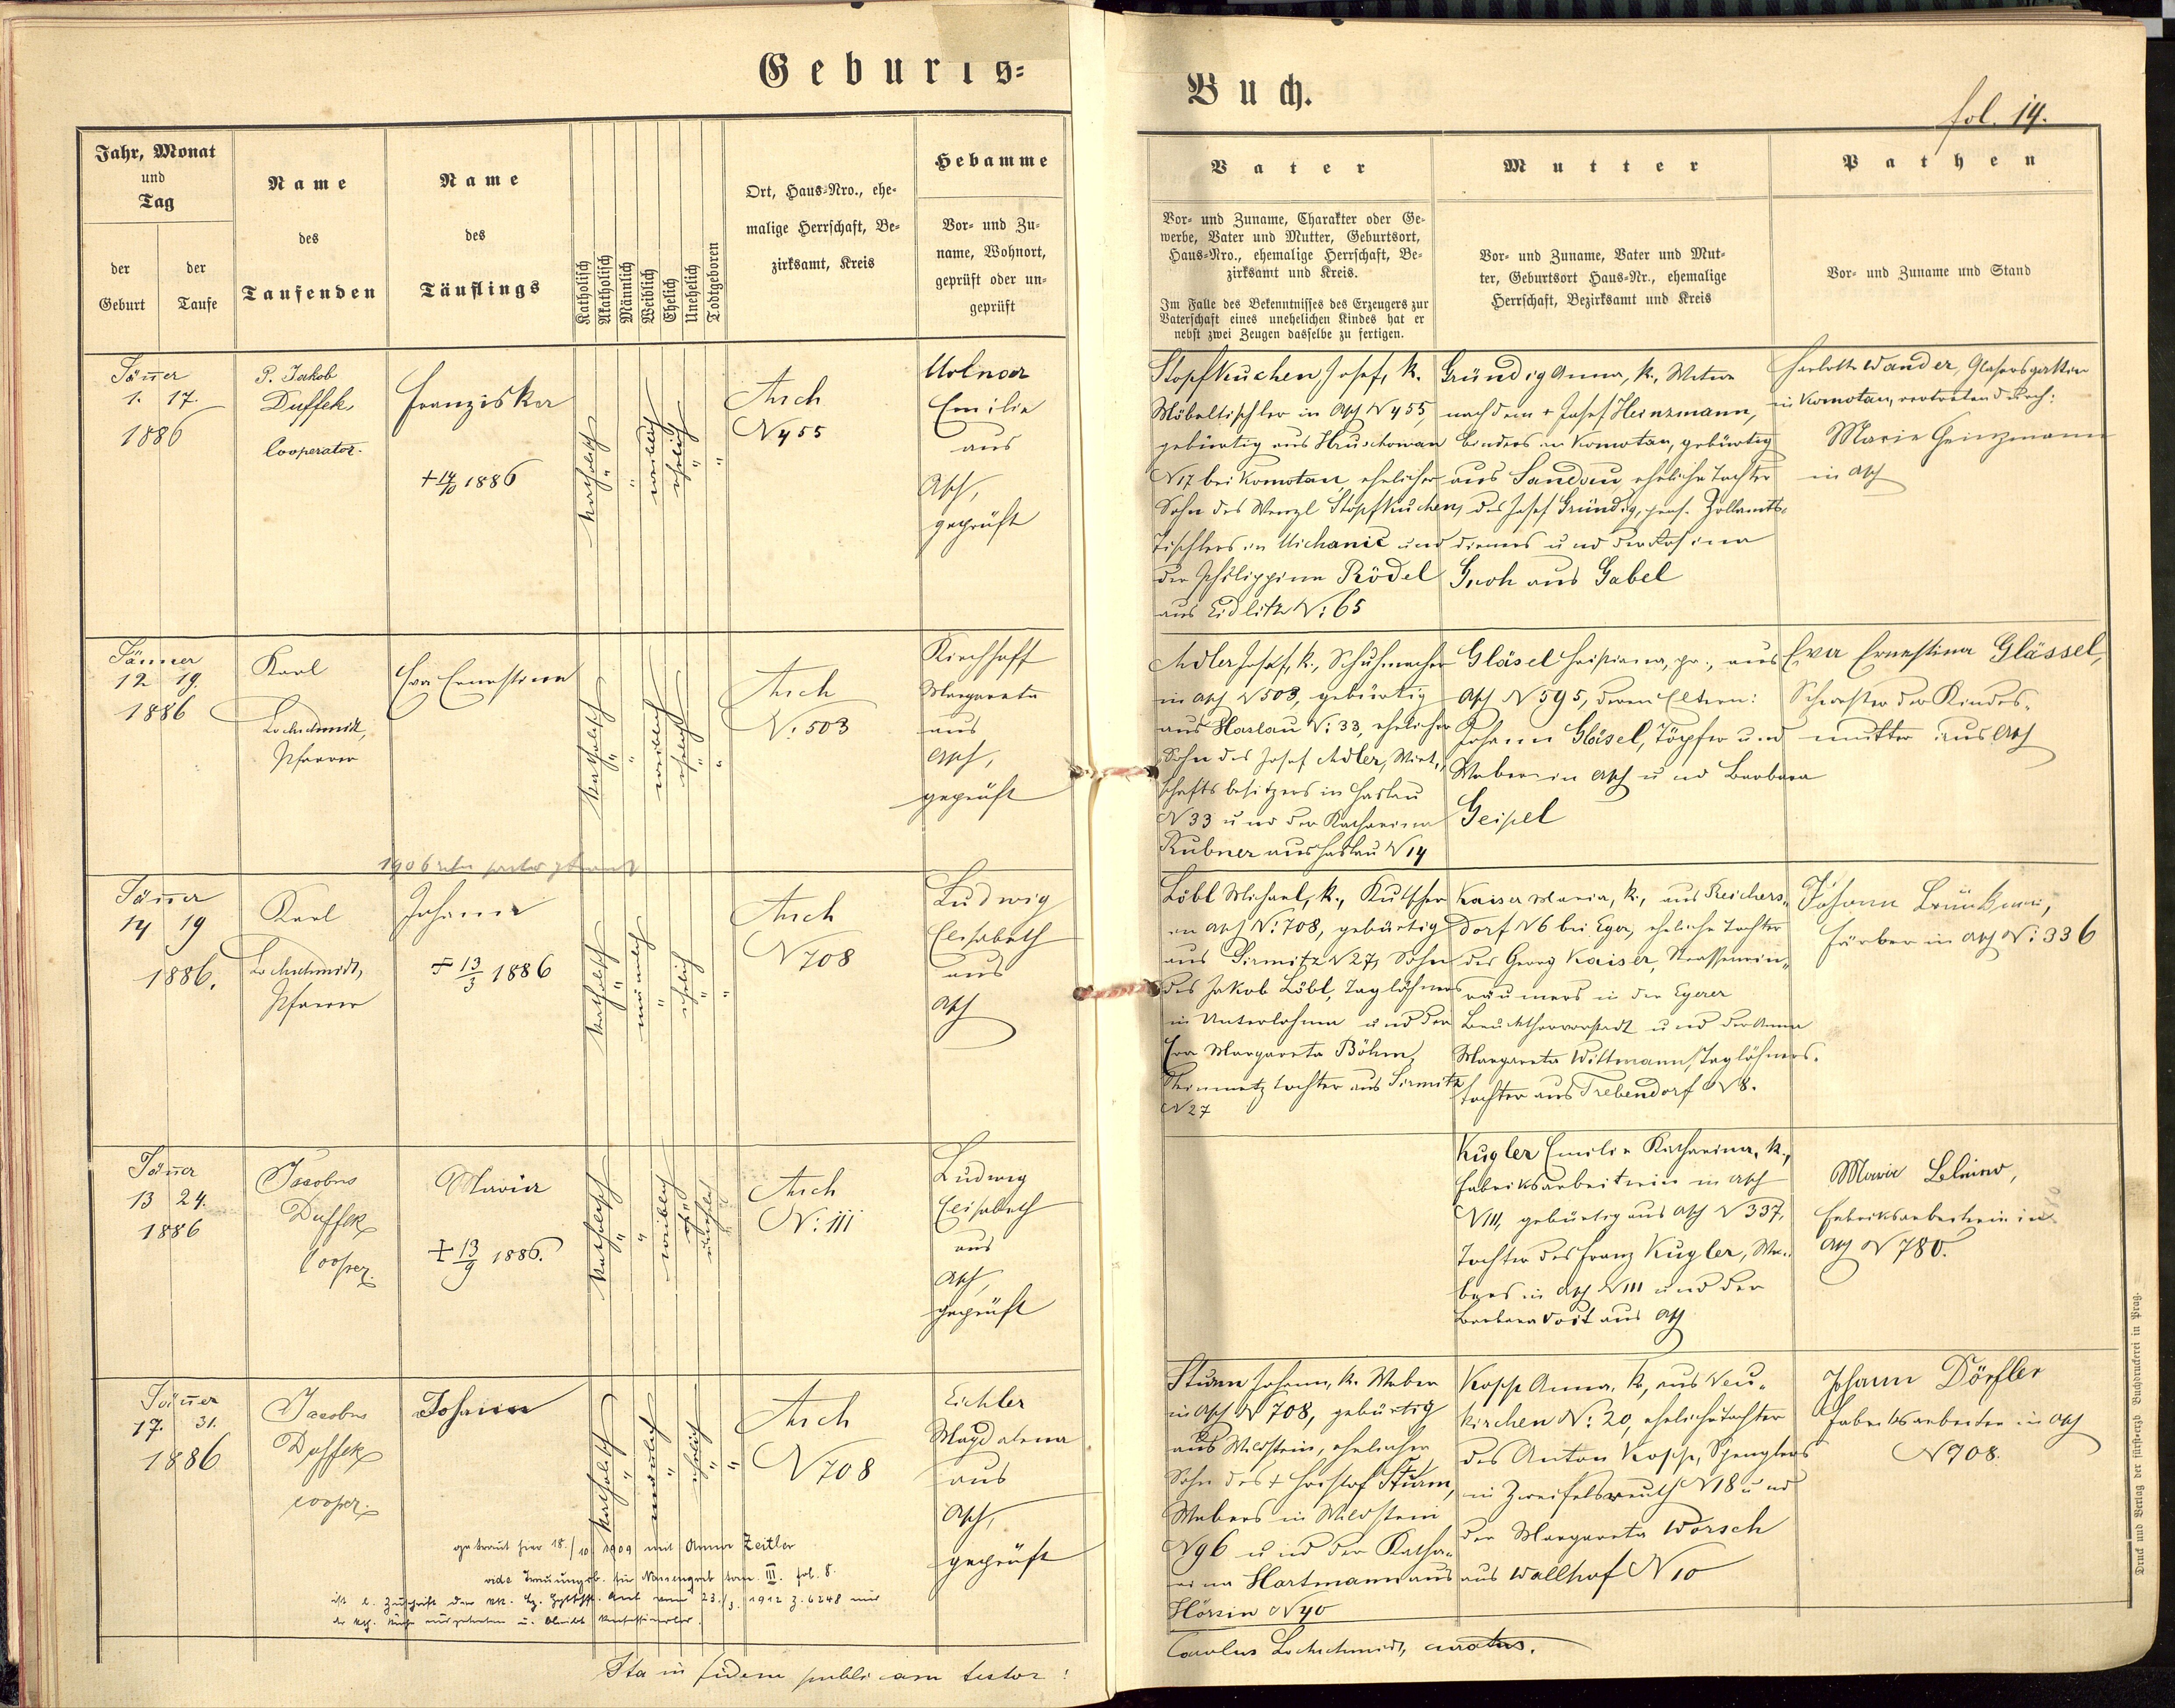 Geburts=
Buch.
fol. 14.
Jahr, Monat
und
Tag
der
Geburt
der
Taufe
Name
des
Taufenden
Name
des
Täuflings
Katholisch
Akatholisch
Männlich
Weiblich
Ehelich
Unehelich
Todtgeboren
Ort, Haus-Nro., ehe-
malige Herrschaft, Be-
zirksamt, Kreis
Hebamme
Vor- und Zu-
name, Wohnort,
geprüft oder un-
geprüft
Vater
Vor- und Zuname, Charakter oder Ge-
werbe, Vater und Mutter, Geburtsort,
Haus-Nro., ehemalige Herrschaft, Be-
zirksamt und Kreis.
Im Falle des Bekenntnisses des Erzeugers zur
Vaterschaft eines unehelichen Kindes hat er
nebst zwei Zeugen dasselbe zu fertigen.
Mutter
Vor- und Zuname, Vater und Mut-
ter, Geburtsort Haus-Nr., ehemalige
Herrschaft, Bezirksamt und Kreis
Pathen
Vor- und Zuname und Stand
Jänner
1. 17.
1886
P. Jakob
Duffek,
Cooperator.
Franziska
+ 14/10 1886
katholisch
"
"
weiblich
ehelich
"
"
Asch
N 455
Molnar
Emilie
aus
Asch,
geprüft
Stopfkuchen Josef, k.
Möbeltischler in Asch N 455,
gebürtig aus Hruschowan
N 17 bei Komotau, ehelicher
Sohn des Wenzl Stopfkuchen,
Tischlers in Michanic und
der Philippine Rödel
aus Eidlitz N: 65
Gründig Anna, k., Witwe
nach dem + Josef Heinzmann,
Binders in Komotau, gebürtig
aus Sandau, eheliche Tochter
des Josef Gründig, pens. Zollamts-
dieners und der Rosina
Groh aus Gabel
Charlotte Wander, Glasersgattin
in Komotau, vertreten durch:
Marie Heinzmann
in Asch
Jänner
12 19.
1886
Karl
Lochschmidt,
Pfarrer
Eva Ernestine
katholisch
"
"
weiblich
ehelich
"
"
Asch
N: 503
Kirchhoff
Margareta
aus
Asch,
geprüft
Adler Josef, k., Schuhmacher
in Asch N 503, gebürtig
aus Haslau N: 33, ehelicher
Sohn des Josef Adler, Wirt-
schaftsbesitzers in Haslau
N 33 und der Katharina
Rubner aus Haslau N 14
Gläsel Christiana, pr., aus
Asch N 595, deren Eltern:
Johann Gläsel, Töpfer und
Weber in Asch und Barbara
Geipel
Eva Ernestina Glässel,
Schwester der Kindes-
mutter aus Asch
1906
Jänner
14 19
1886.
Karl
Lochschmidt,
Pfarrer
Johann
+ 13/3 1886
katholisch
"
männlich
"
ehelich
"
"
Asch
N 708
Ludwig
Elisabeth
aus
Asch
Löbl Michael, k., Kutscher
in Asch N: 708, gebürtig
aus Sirmitz N 27, Sohn
des Jakob Löbl, Taglöhners
in Unterlohma und der
Eva Margareta Böhm,
Steinmetztochter aus Sirmitz
N 27
Kaiser Maria, k., aus Reichers-
dorf N 6 bei Eger, eheliche Tochter
des Georg Kaiser, Strassenein-
räumers in der Egerer
Bruckthorvorstadt und der Anna
Margareta Wittmann, Taglöhners-
tochter aus Trebendorf N 8.
Johann
Färber in Asch N: 336
Jänner
13 24.
1886
Jacobus
Duffek
cooper.
Maria
+ 13/9 1886.
katholisch
"
"
weiblich
unehelich
Asch
N: 111
Ludwig
Elisabeth
aus
Asch,
geprüft
Kugler Emilie Katharina, k.,
Fabriksarbeiterin in Asch
N 111, gebürtig aus Asch N 337,
Tochter des Franz Kugler, We-
bers in Asch N 111 und der
Barbara Voit aus Asch
Maria
Fabriksarbeiterin in
Asch N 780.
Jänner
17. 31.
1886
Jacobus
Duffek
cooper.
Johann
katholisch
"
männlich
"
ehelich
"
"
Asch
N 708
Eichler
Magdalena
aus
Asch,
geprüft
Sturm Johann, k. Weber
in Asch N 708, gebürtig
aus Wildstein, ehelicher
Sohn des + Christof Sturm,
Webers in Wildstein
N 96 und der Katha-
rina Hartmann aus
Hörsin N 40
Kopp Anna, k., aus Neu-
kirchen N: 20, eheliche Tochter
des Anton Kopp, Spenglers
in Zweifelsreuth N 18 und
der Margareta Worsch
aus Wallhof N 10
Johann Dörfler
Fabriksarbeiter in Asch
N 908.
getraut hier 18./10. 1909 mit Anna Zeitler
vide Trauungsb. tom. III. fol. 8.
ist l. Zuschrift der vom 23./3. 1912 Z. 6248 aus
der kath. Kirche ausgetreten u. bleibt konfessionslos.
Ita in fidem publicam testor:
Carolus Lochschmidt, curatus.
Druck und Verlag der fürst-erzb. Buchdruckerei in Prag.